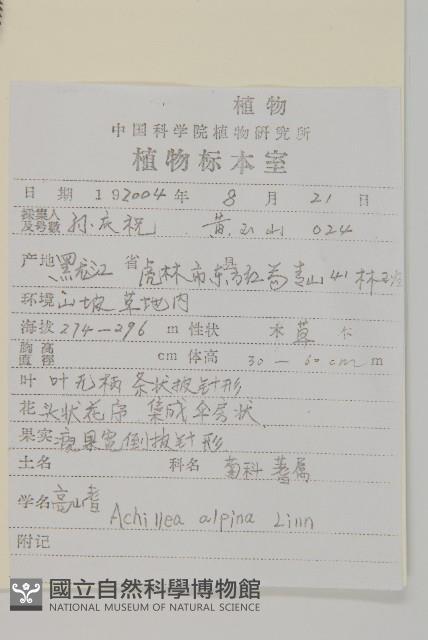 植物
中国科学院植物研究所
植物标本室
日期 192004年 8月 21日
採集人及号数 孙庆祝 黄玉山 024
产地 黑龙江省 虎林市东方红 青山 林
环境 山坡草地内
海拔 274—296 m 性状 木 草
胸高直徑 cm 体高 30—60cm m
叶 叶无柄 条状披针形
花 头状花序 集成伞房状
果实 瘦果宽倒披针形
土名 科名 菊科 蓍属
学名 高山蓍 Achillea alpina Linn
附记
國立自然科學博物館
NATIONAL MUSEUM OF NATURAL SCIENCE